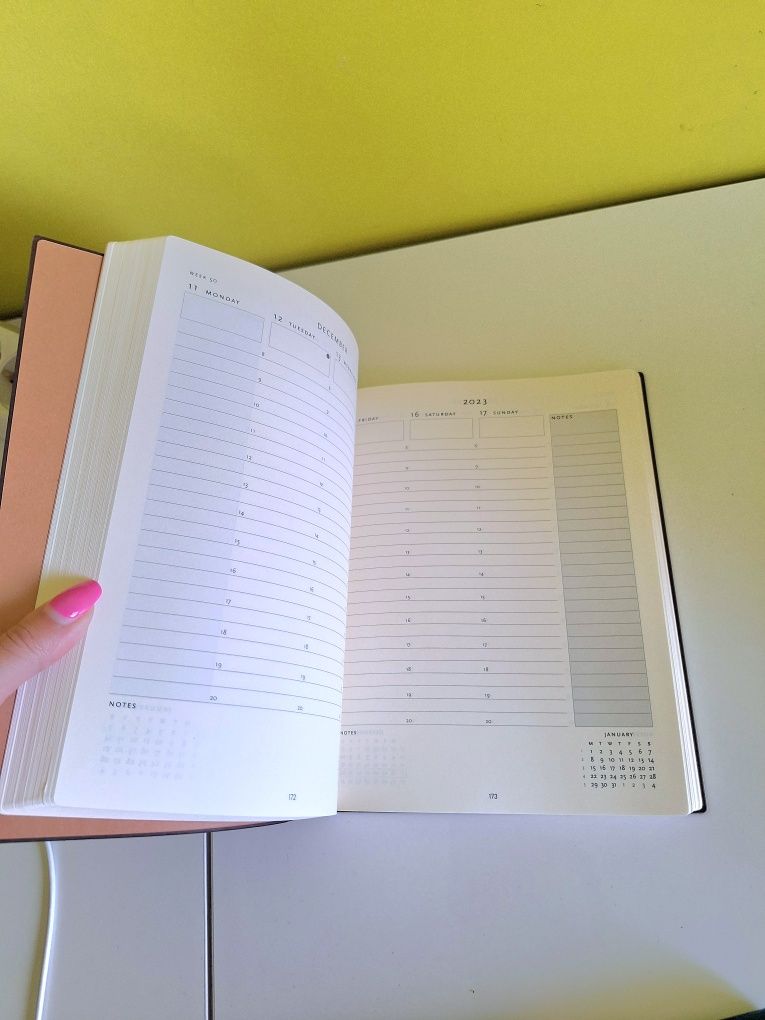 WEEK 50
DECEMBER
11 MONDAY
12 TUESDAY
13
8
9 9
10 10
11 11
12 12
13 13
14 14
15 15
16 16
17 17
18 18
19 19
20 20
NOTES
172
2023
FRIDAY 16 SATURDAY 17 SUNDAY NOTES
8 8
9 9
10 10
11 11
12 12
13 13
14 14
15 15
16 16
17 17
18 18
19 19
20 20
NOTES
JANUARY
M T W T F S S
1 1 2 3 4 5 6 7
2 8 9 10 11 12 13 14
3 15 16 17 18 19 20 21
4 22 23 24 25 26 27 28
5 29 30 31 1 2 3 4
173